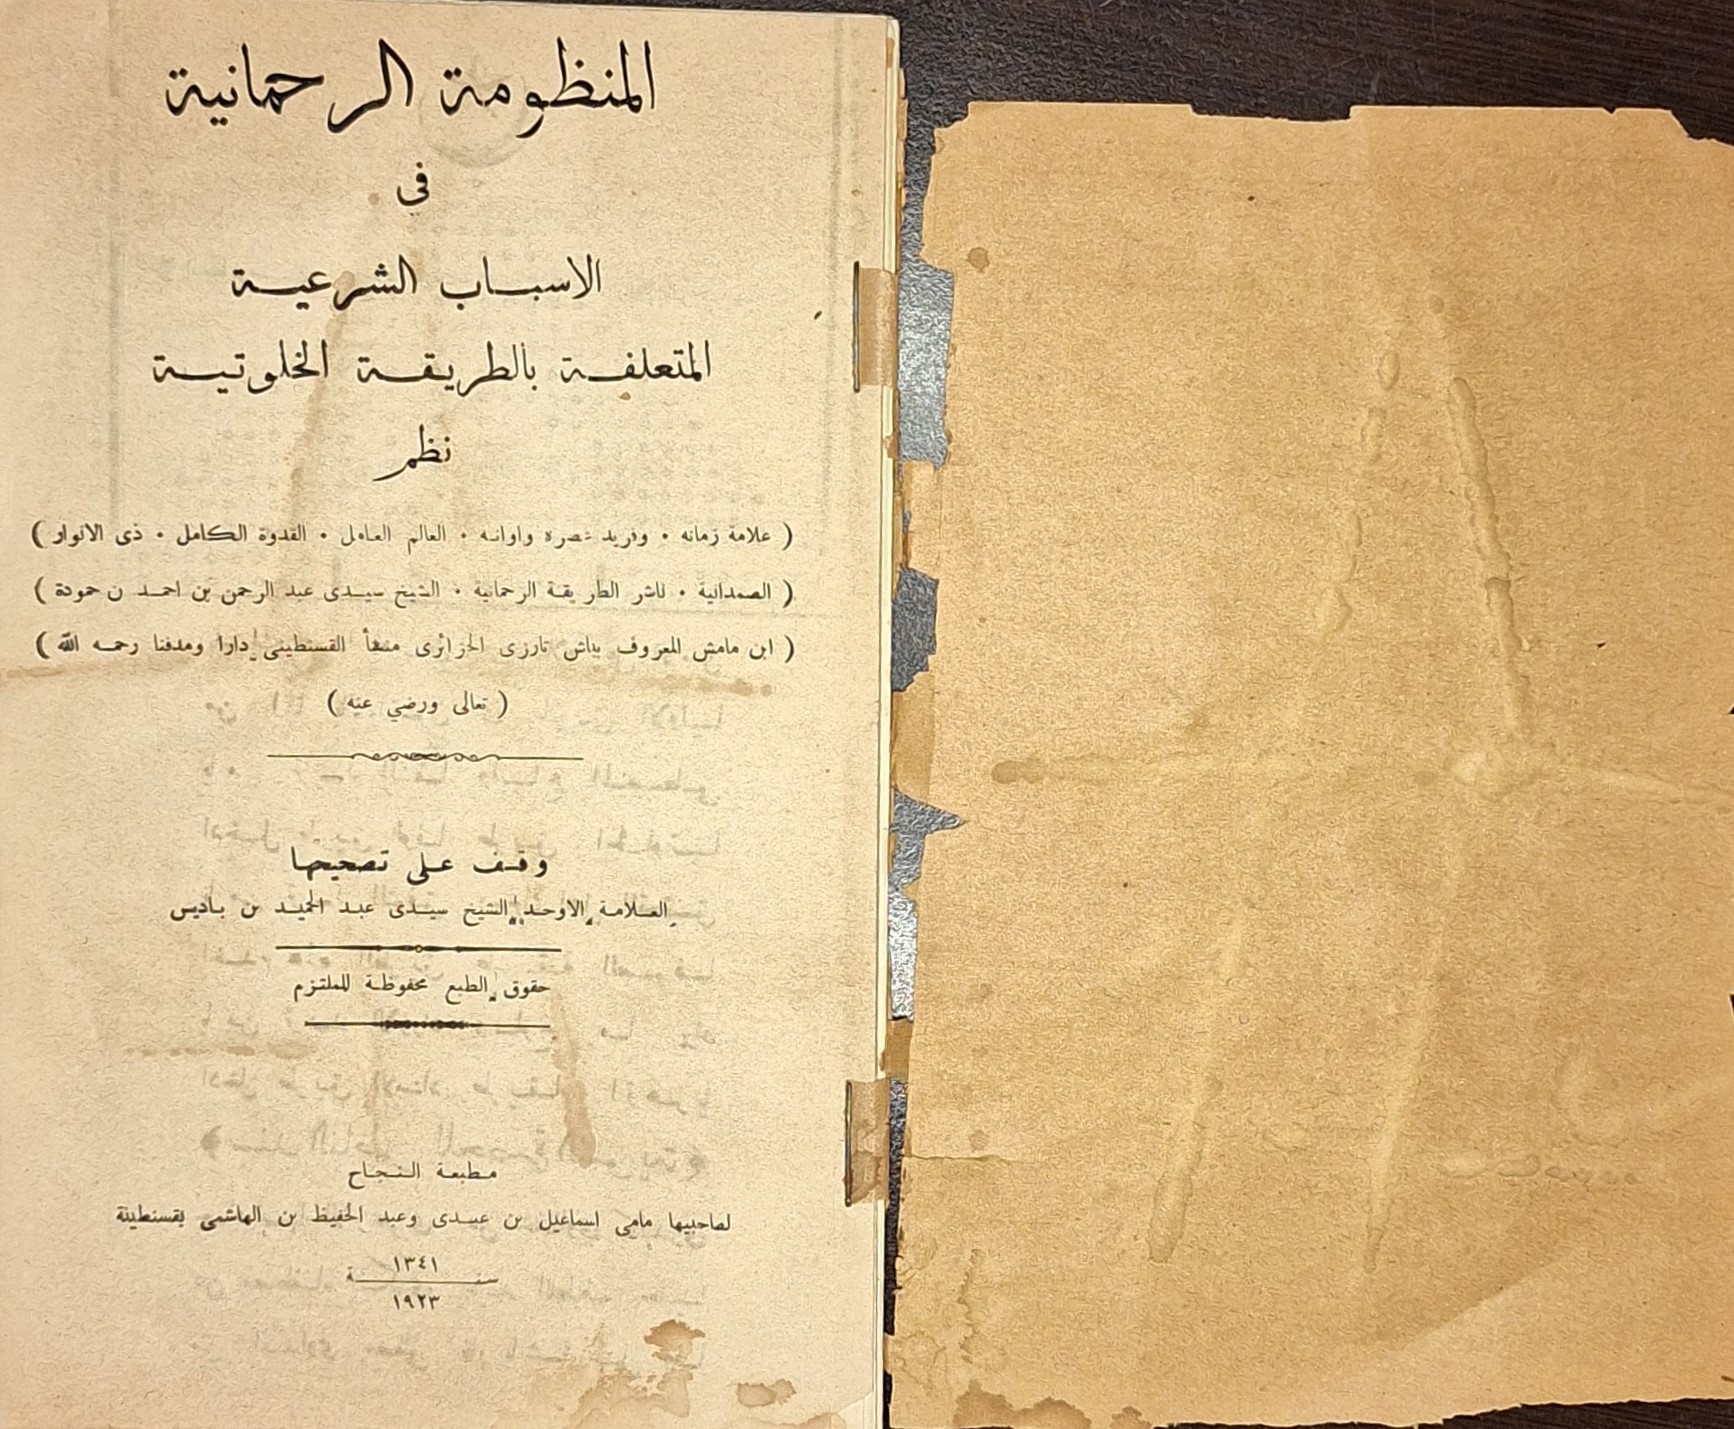 المنظومة الرحمانية
في
الاسباب الشرعية
المتعلقة بالطريقة الخلوتية
نظم
( علامة زمانه • وفريد عصره واوانه • العالم العامل • القدوة الكامل • ذى الانوار )
( الصمدانية • ناشر الطريقة الرحمانية • الشيخ سيدى عبد الرحمن بن احمد بن حمودة )
( ابن مامش المعروف بباش تارزى الجزائرى منشأ القسنطينى دارا ومدفنا رحمه الله )
( تعالى ورضي عنه )
وقف على تصحيحها
العلامة الاوحد الشيخ سيدى عبد الحميد بن باديس
حقوق الطبع محفوظة للملتزم
مطبعة النجاح
لصاحبيها مامى اسماعيل بن عبدى وعبد الحفيظ بن الهاشمى بقسنطينة
١٣٤١
سنة
١٩٢٣